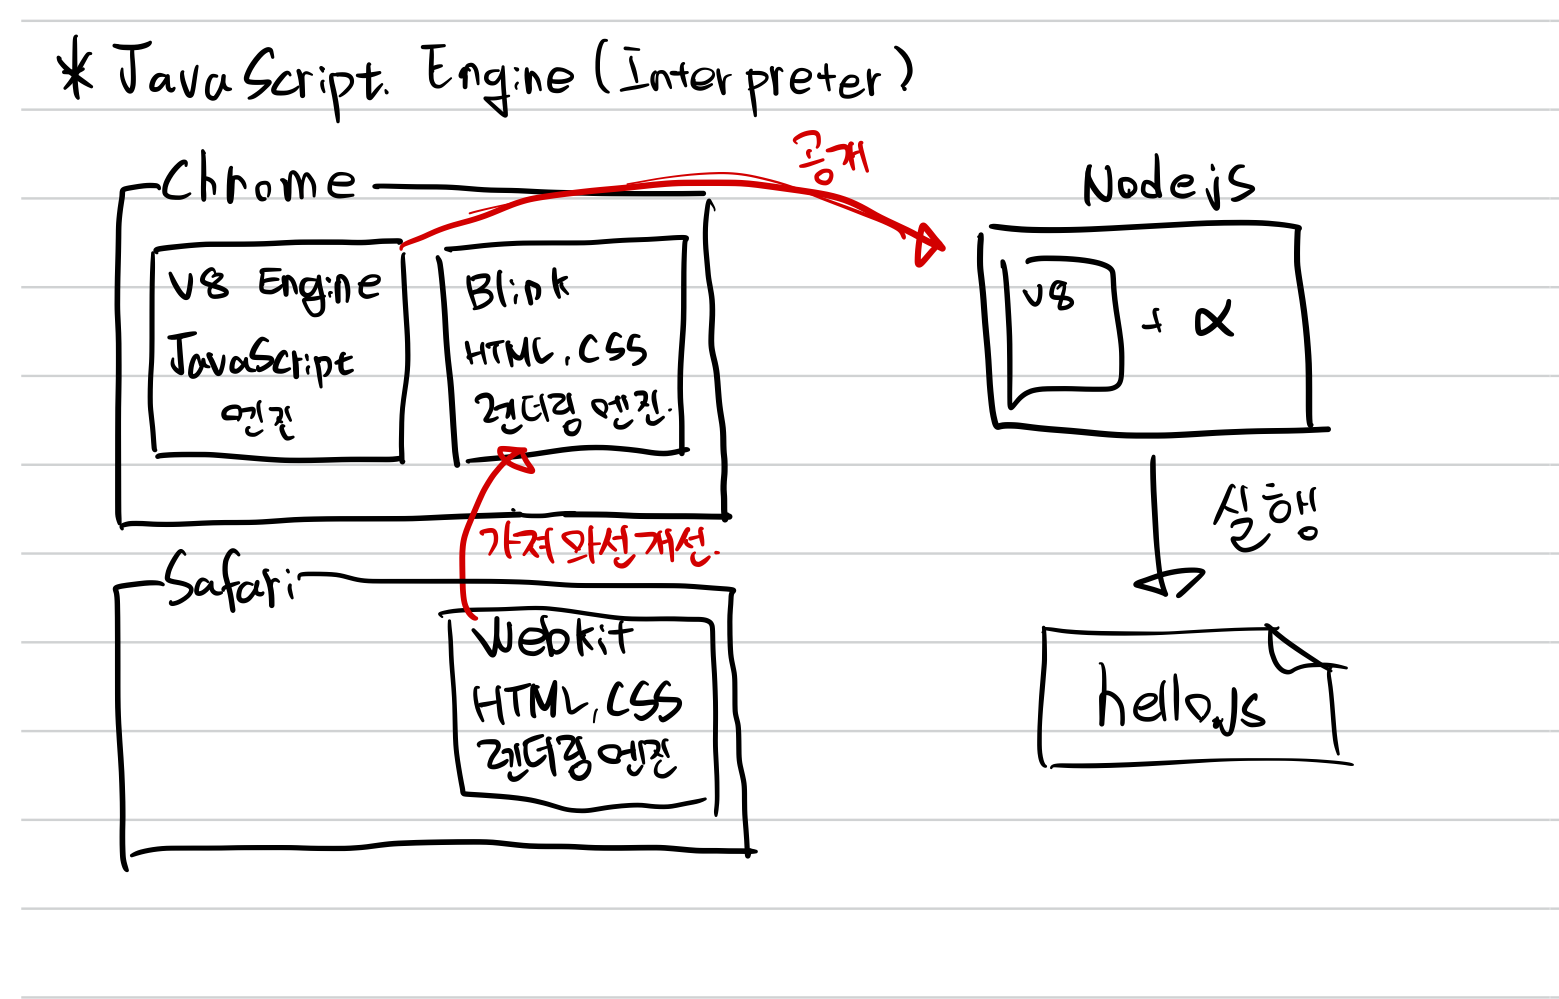 * JavaScript. Engine (Interpreter)
공개
Chrome
Nodejs
V8 Engine
JavaScript
엔진
Blink
HTML, CSS
렌더링 엔진.
V8
+ α
가져와선 개선.
실행
Safari
Webkit
HTML, CSS
렌더링 엔진
hello.js